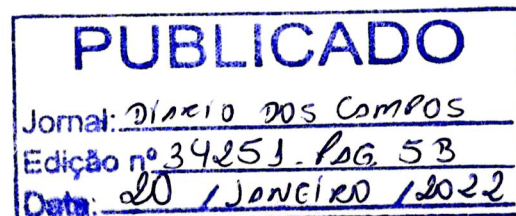 PUBLICADO
Jornal: DIÁRIO DOS CAMPOS
Edição nº 34251. PAG. 5B
Data: 20 / JANEIRO / 2022